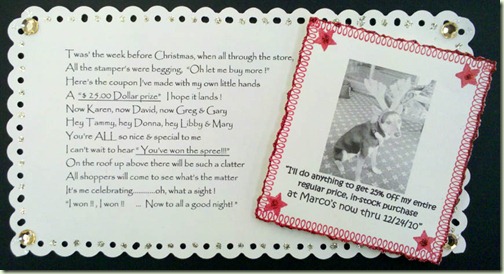 Twas' the week before Christmas, when all through the store,
All the stamper's were begging, "Oh let me buy more !"
Here's the coupon I've made with my own little hands
A "$ 25.00 Dollar prize" I hope it lands !
Now Karen, now David, now Greg & Gary
Hey Tammy, hey Donna, hey Libby & Mary
You're ALL so nice & special to me
I can't wait to hear "You've won the spree!!!"
On the roof up above there will be such a clatter
All shoppers will come to see what's the matter
It's me celebrating...........oh, what a sight !
"I won !!, I won !! ... Now to all a good night! "
"I'll do anything to get 25% off my entire
regular price, in-stock purchase
at Marco's now thru 12/24/10"